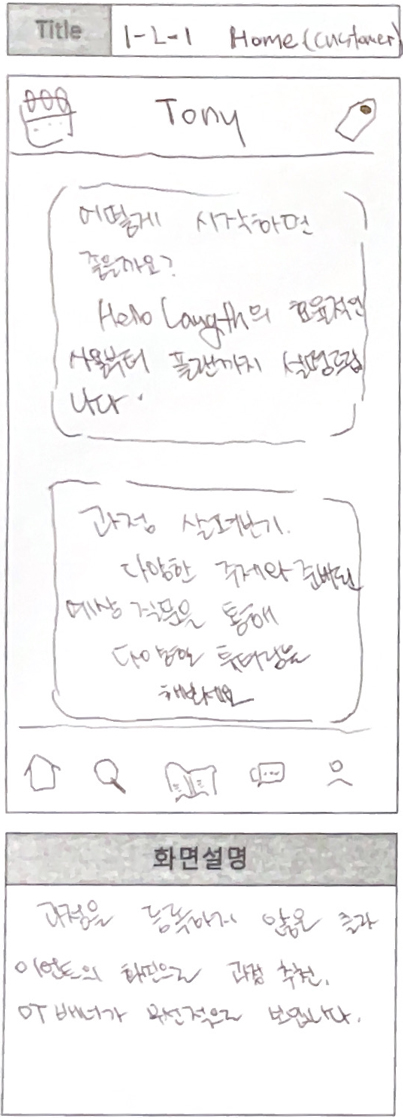 Title 1-2-1 Home(customer)
Tony
어떻게 시작하면
좋을까요?
Hello Laugth의 효율적인
사용부터 플랜까지 설명드립
니다.
과정 살펴보기.
다양한 주제와 준비된
예상 질문을 통해
다양한 튜터링을
해보세요
화면설명
과정을 등록하지 않은
의 화면으로 과정 추천.
OT 배너가 우선적으로 보입니다.